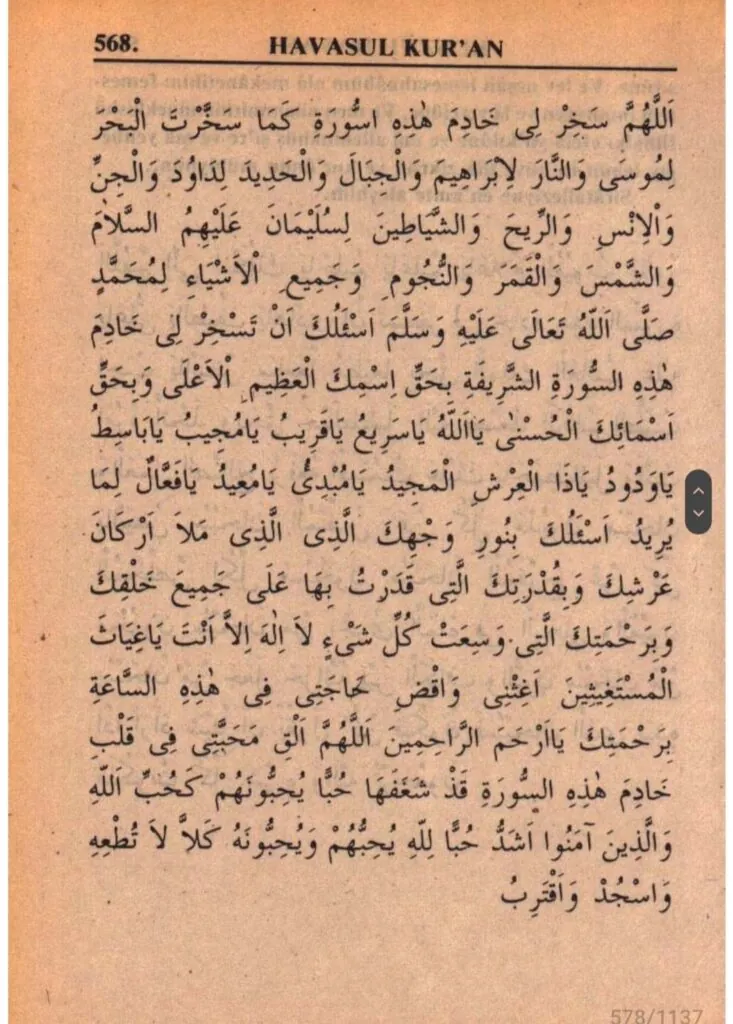 568. HAVASUL KUR'AN
اَللّٰهُمَّ سَخِرْ لِى خَادِمَ هٰذِهِ اسُّورَةِ كَمَا سَخَّرْتَ الْبَحْرَ
لِمُوسَى وَالنَّارَ لِاِبْرَاهِيمَ وَالْجِبَالَ وَالْحَدِيدَ لِدَاوُدَ وَالْجِنِّ
وَاْلاِنْسِ وَالرِّيحَ وَالشَّيَاطِينَ لِسُلَيْمَانَ عَلَيْهِمُ السَّلاَمَ
وَالشَّمْسَ وَالْقَمَرَ وَالنُّجُومِ وَجَمِيعِ اْلاَشْيَاءِ لِمُحَمَّدٍ
صَلَّى اَللّٰهُ تَعَالَى عَلَيْهِ وَسَلَّمَ اَسْئَلُكَ اَنْ تَسْخِرْ لِى خَادِمَ
هٰذِهِ السُّورَةِ الشَّرِيفَةِ بِحَقِّ اِسْمِكَ الْعَظِيمِ اْلاَعْلَى وَبِحَقِّ
اَسْمَائِكَ الْحُسْنٰى يَااَللّٰهُ يَاسَرِيعُ يَاقَرِيبُ يَامُجِيبُ يَابَاسِطُ
يَاوَدُودُ يَاذَا الْعِرْشِ الْمَجِيدُ يَامُبْدِئُ يَامُعِيدُ يَافَعَّالٌ لِمَا
يُرِيدُ اَسْئَلُكَ بِنُورِ وَجْهِكَ الَّذِى الَّذِى مَلاَ اَرْكَانَ
عَرْشِكَ وَبِقُدْرَتِكَ الَّتِى قَدَرْتُ بِهَا عَلَى جَمِيعَ خَلْقِكَ
وَبِرَحْمَتِكَ الَّتِى وَسِعَتْ كُلِّ شَىْءٍ لاَ اِلٰهَ اِلاَّ اَنْتَ يَاغِيَاثَ
الْمُسْتَغِيثِينَ اَغِثْنِى وَاقْضِ حَاجَتِى فِى هٰذِهِ السَّاعَةِ
بِرَحْمَتِكَ يَااَرْحَمَ الرَّاحِمِينَ اَللّٰهُمَّ اَلْقِ مَحَبَّتِى فِى قَلْبِ
خَادِمَ هٰذِهِ السُّورَةِ قَدْ شَغَفَهَا حُبًّا يُحِبُّونَهُمْ كَحُبِّ اَللّٰهِ
وَالَّذِينَ آمَنُوا اَشَدُّ حُبًّا لِلّٰهِ يُحِبُّهُمْ وَيُحِبُّونَهُ كَلاَّ لاَ تُطْعِهِ
وَاسْجُدْ وَاقْتَرِبُ
578/1137